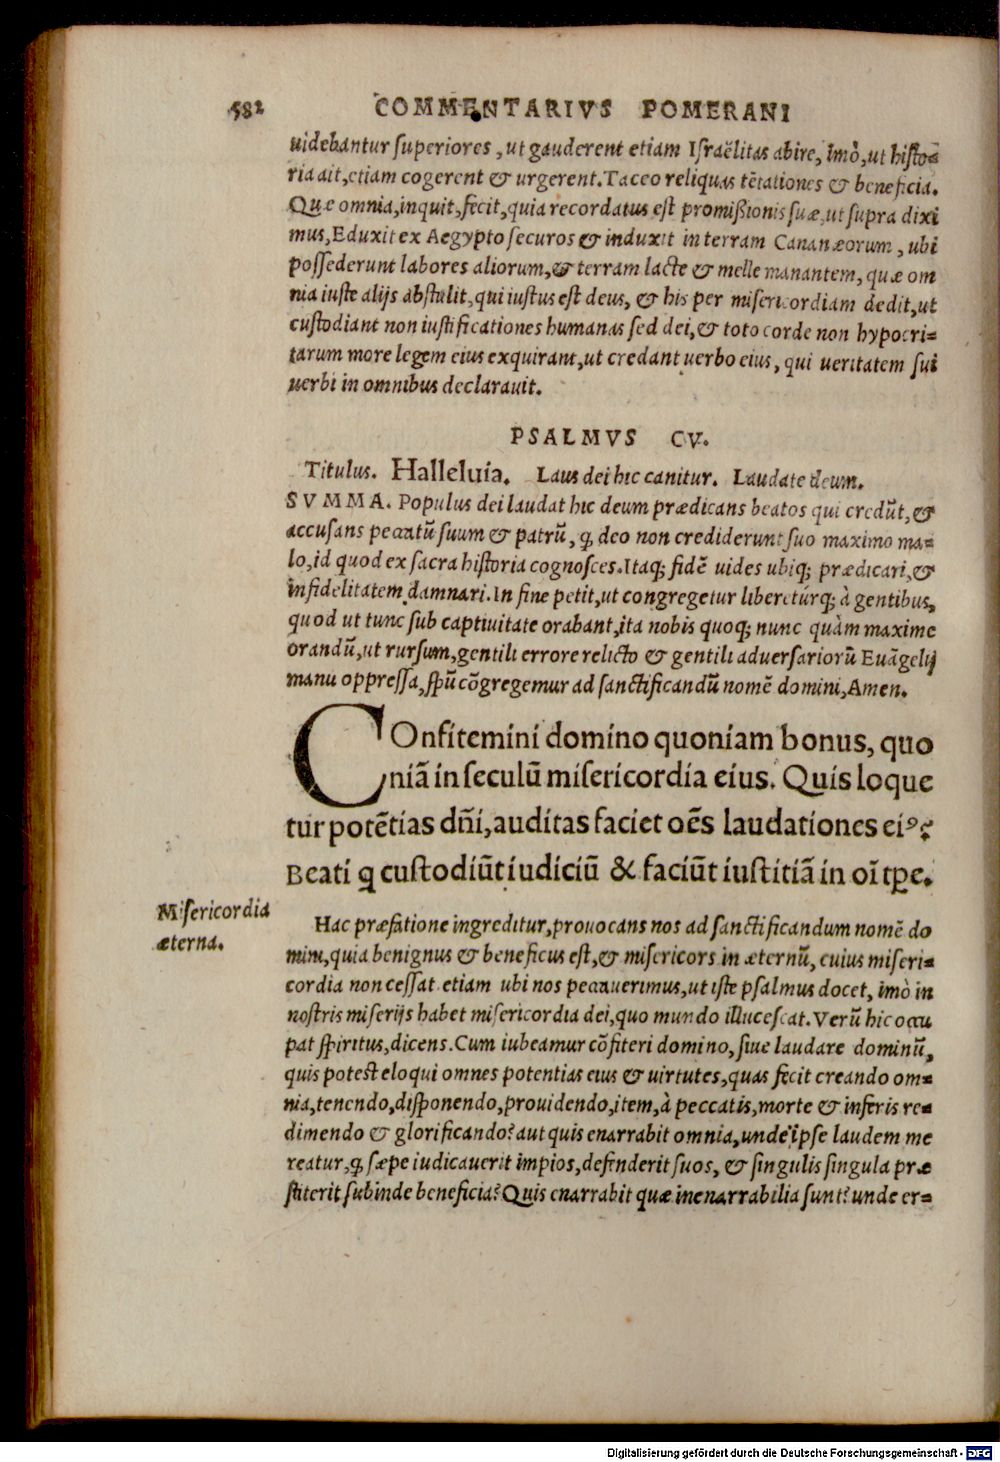 582 COMMENTARIVS POMERANI
uidebantur superiores, ut gauderent etiam Israëlitas abire, imò, ut histo-
ria ait, etiam cogerent & urgerent. Taceo reliquas tẽtationes & beneficia.
Quæ omnia, inquit, fecit, quia recordatus est promißionis suæ, ut supra dixi
mus, Eduxit ex Aegypto securos & induxit in terram Cananæorum, ubi
possederunt labores aliorum, & terram lacte & melle manantem, quæ om
nia iuste alijs abstulit, qui iustus est deus, & his per misericordiam dedit, ut
custodiant non iustificationes humanas sed dei, & toto corde non hypocri-
tarum more legem eius exquirant, ut credant uerbo eius, qui ueritatem sui
uerbi in omnibus declarauit.
PSALMVS CV.
Titulus. Halleluia. Laus dei hic canitur. Laudate deum.
SVMMA. Populus dei laudat hic deum prædicans beatos qui credũt, &
accusans peccatũ suum & patrũ, ꝙ deo non crediderunt suo maximo ma-
lo, id quod ex sacra historia cognosces. Itaqꝫ fidẽ uides ubiqꝫ prædicari, &
infidelitatem damnari. In fine petit, ut congregetur liberetúrqꝫ à gentibus,
quod ut tunc sub captiuitate orabant, ita nobis quoqꝫ nunc quàm maxime
orandũ, ut rursum, gentili errore relicto & gentili aduersariorũ Euãgelij
manu oppressa, spũ cõgregemur ad sanctificandũ nomẽ domini, Amen.
COnfitemini domino quoniam bonus, quo
niã in seculũ misericordia eius. Quis loque
tur potẽtias dñi, auditas faciet oẽs laudationes eiꝰ?
Beati q custodiũt iudiciũ & faciũt iustitiã in oĩ tpe.
Misericordia
æterna.
Hac præfatione ingreditur, prouocans nos ad sanctificandum nomẽ do
mini, quia benignus & beneficus est, & misericors in æternũ, cuius miseri-
cordia non cessat etiam ubi nos peccauerimus, ut iste psalmus docet, imò in
nostris miserijs habet misericordia dei, quo mundo illucescat. Verũ hic occu
pat spiritus, dicens. Cum iubeamur cõfiteri domino, siue laudare dominũ,
quis potest eloqui omnes potentias eius & uirtutes, quas fecit creando om-
nia, tenendo, disponendo, prouidendo, item, à peccatis, morte & inferis re-
dimendo & glorificando? aut quis enarrabit omnia, unde ipse laudem me
reatur, ꝙ sæpe iudicauerit impios, defenderit suos, & singulis singula præ
stiterit subinde beneficia? Quis enarrabit quæ inenarrabilia sunt? unde er-
Digitalisierung gefördert durch die Deutsche Forschungsgemeinschaft - DFG